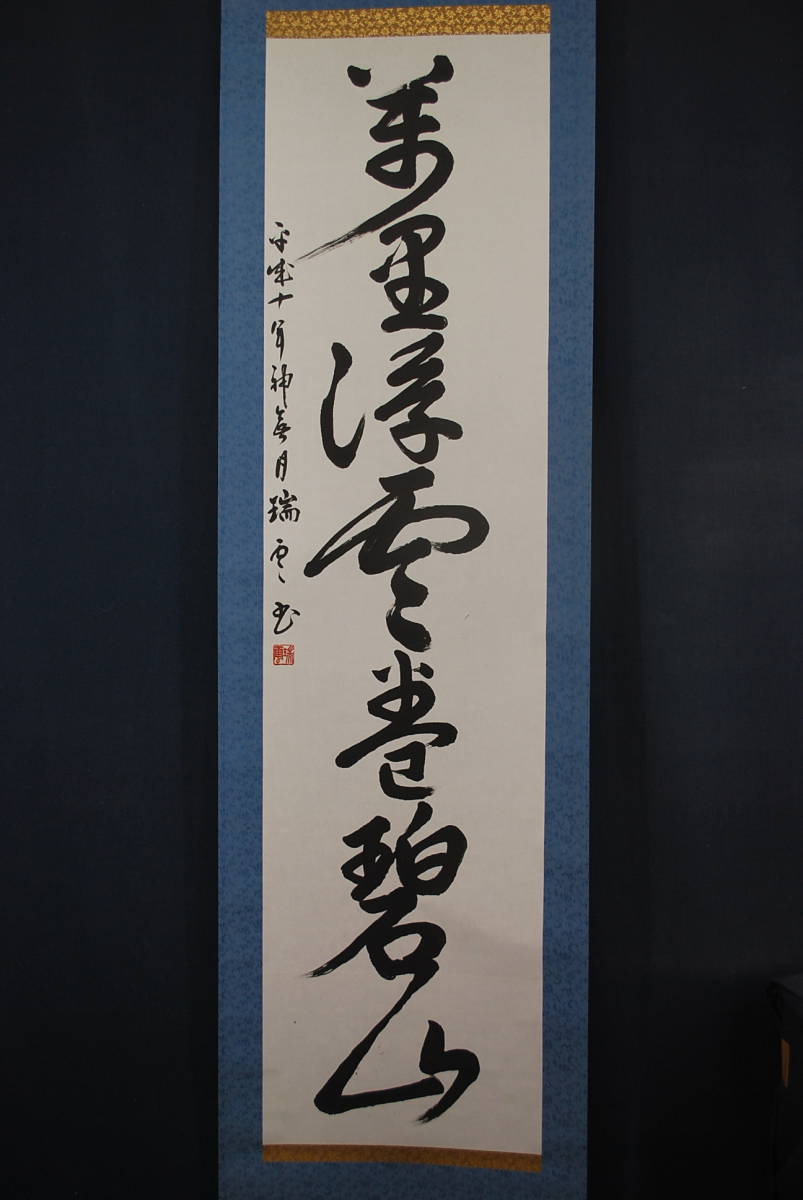 萬里浮雲卷碧山
平成十年神無月瑞雲書